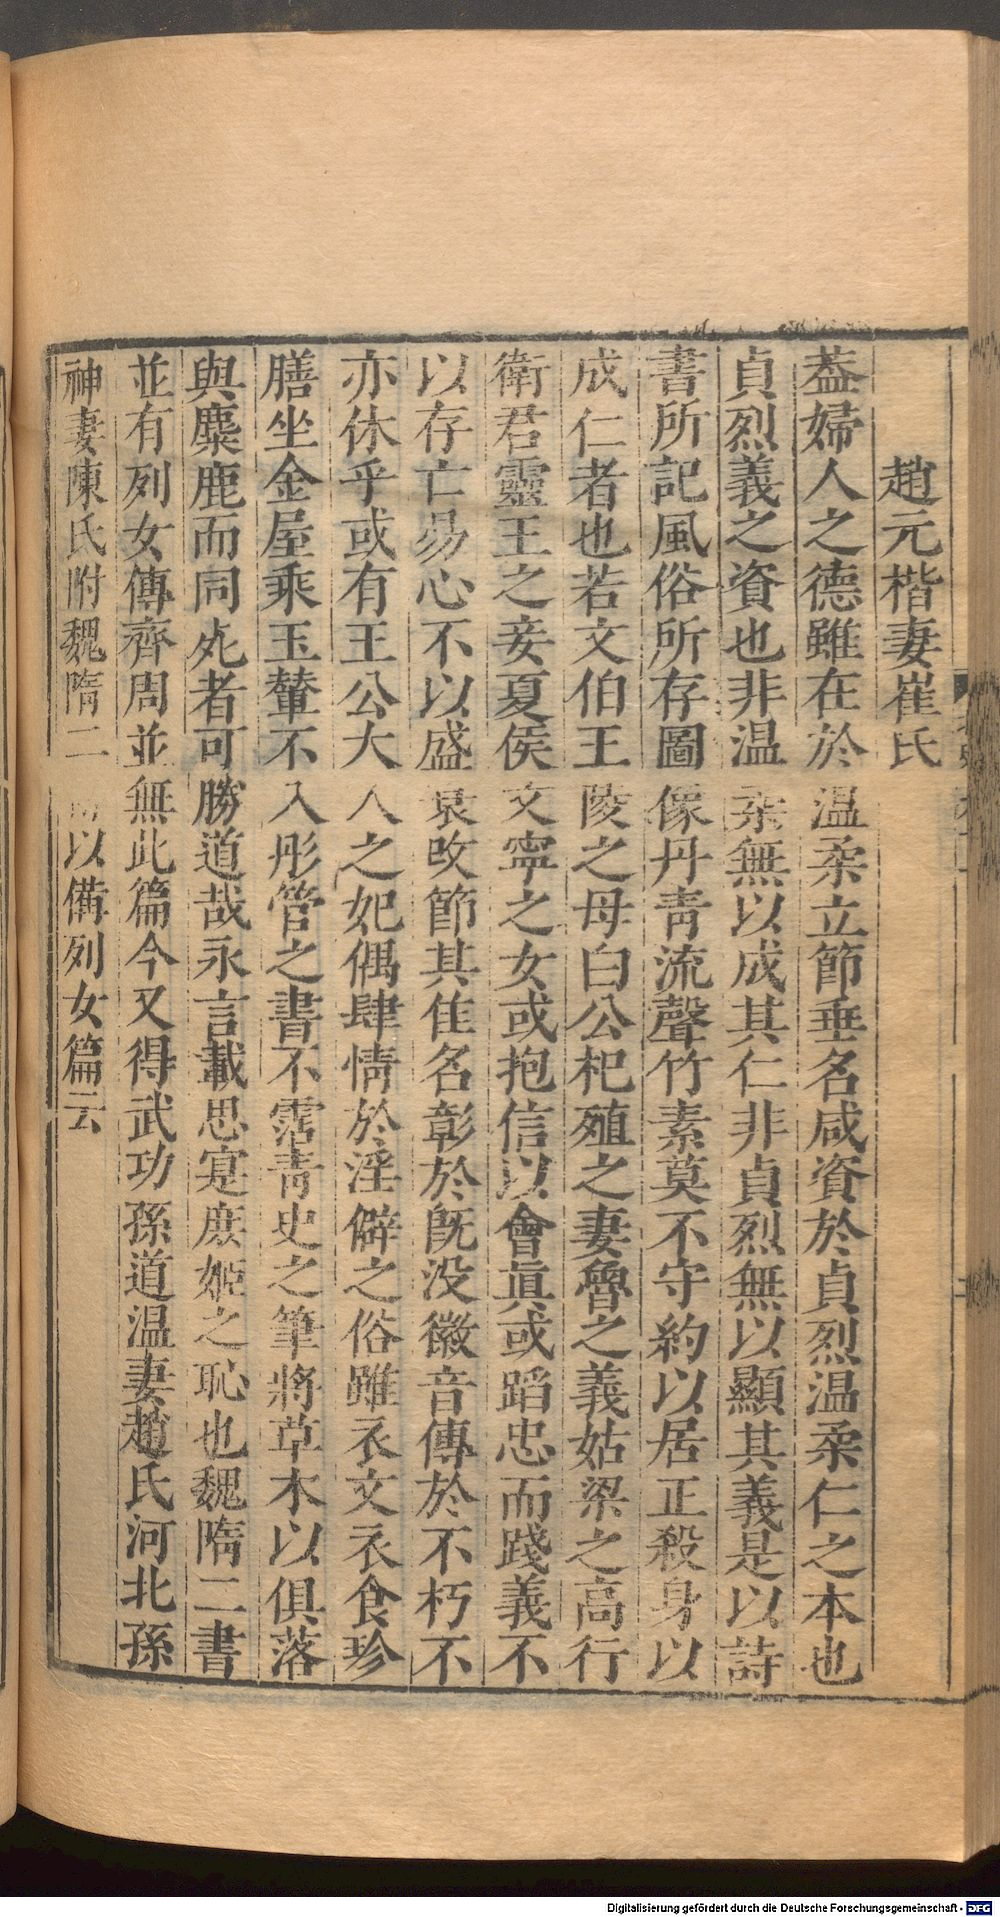 趙元楷妻崔氏
葢婦人之德雖在於温柔立節垂名咸資於貞烈温柔仁之本也
貞烈義之資也非温柔無以成其仁非貞烈無以顯其義是以詩
書所記風俗所存圖像丹青流聲竹素莫不守約以居正殺身以
成仁者也若文伯王陵之母白公杞殖之妻魯之義姑梁之高行
衛君靈王之妾夏侯文寧之女或抱信以會真或蹈忠而踐義不
以存亡易心不以盛衰改節其佳名彰於既没徽音傳於不朽不
亦休乎或有王公大人之妃偶肆情於淫僻之俗雖衣文衣食珍
膳坐金屋乘玉輦不入彤管之書不霑青史之筆將草木以俱落
與麋鹿而同死者可勝道哉永言載思寔庶姬之恥也魏隋二書
並有列女傳齊周並無此篇今又得武功孫道温妻趙氏河北孫
神妻陳氏附魏隋二以備列女篇云
Digitalisierung gefördert durch die Deutsche Forschungsgemeinschaft - DFG